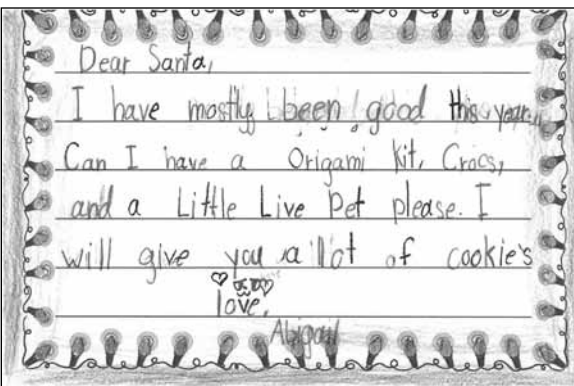 Dear Santa,
I have mostly been good this year.
Can I have a Origami kit, Crocs,
and a Little Live Pet please. I
will give you a lot of cookie's
love,
Abigail